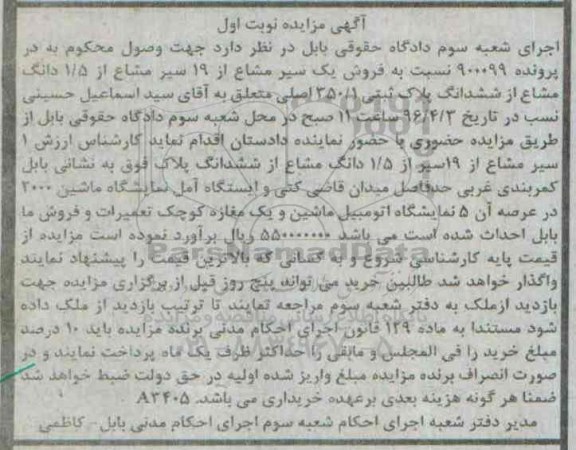 آگهی مزایده نوبت اول
اجرای شعبه سوم دادگاه حقوقی بابل در نظر دارد جهت وصول محکوم به در
پرونده ۹۰۰۰۹۹ نسبت به فروش یک سیر مشاع از ۱۹ سیر مشاع از ۱/۵ دانگ
مشاع از ششدانگ پلاک ثبتی ۳۵۰/۱ اصلی متعلق به آقای سید اسماعیل حسینی
نسب در تاریخ ۹۶/۴/۳ ساعت ۱۱ صبح در محل شعبه سوم دادگاه حقوقی بابل از
طریق مزایده حضوری با حضور نماینده دادستان اقدام نماید کارشناس ارزش ۱
سیر مشاع از ۱۹سیر از ۱/۵ دانگ مشاع از ششدانگ پلاک فوق به نشانی بابل
کمربندی غربی حدفاصل میدان قاضی کتی و ایستگاه آمل نمایشگاه ماشین ۲۰۰۰
در عرصه آن ۵ نمایشگاه اتومبیل ماشین و یک مغازه کوچک تعمیرات و فروش ما
بابل احداث شده است می باشد ۵۵۰۰۰۰۰۰۰ ریال برآورد نموده است مزایده از
قیمت پایه کارشناسی شروع و به کسانی که بالاترین قیمت را پیشنهاد نمایند
واگذار خواهد شد طالبین خرید می توانند پنج روز قبل از برگزاری مزایده جهت
بازدید ازملک به دفتر شعبه سوم مراجعه نمایند تا ترتیب بازدید از ملک داده
شود مستندا به ماده ۱۲۹ قانون اجرای احکام مدنی برنده مزایده باید ۱۰ درصد
مبلغ خرید را فی المجلس و مابقی را حداکثر ظرف یک ماه پرداخت نمایند و در
صورت انصراف برنده مزایده مبلغ واریز شده اولیه در حق دولت ضبط خواهد شد
ضمنا هر گونه هزینه بعدی برعهده خریداری می باشد. A۳۴۰۵
مدیر دفتر شعبه اجرای احکام شعبه سوم اجرای احکام مدنی بابل - کاظمی